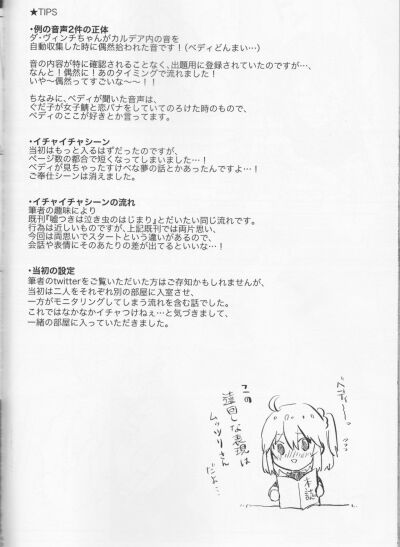 ★TIPS
・例の音声2件の正体
ダ・ヴィンチちゃんがカルデア内の音を
自動収集した時に偶然拾われた音です！(ベディどんまい…)
音の内容が特に確認されることなく、出題用に登録されていたのですが…、
なんと！偶然に！あのタイミングで流れました！
いや〜偶然ってすごいな〜〜！！
ちなみに、ベディが聞いた音声は、
ぐだ子が女子鯖と恋バナをしていてのろけた時のもので、
ベディのここが好きとか言ってます。
・イチャイチャシーン
当初はもっと入るはずだったのですが、
ページ数の都合で短くなってしまいました…！
ベディが見ちゃったすけべな夢の話とかあったんですよ…！
ご奉仕シーンは消えました。
・イチャイチャシーンの流れ
筆者の趣味により
既刊『嘘つきは泣き虫のはじまり』とだいたい同じ流れです。
行為は近しいものですが、上記既刊では両片思い、
今回は両思いでスタートという違いがあるので、
会話や表情にそのあたりの差が出てるといいな…！
・当初の設定
筆者のtwitterをご覧いただいた方はご存知かもしれませんが、
当初は二人をそれぞれ別の部屋に入室させ、
一方がモニタリングしてしまう流れを含む話でした。
これではなかなかイチャつけねぇ…と気づきまして、
一緒の部屋に入っていただきました。
この
遠回しな表現は
ムッツリさん
だよ…
本誌